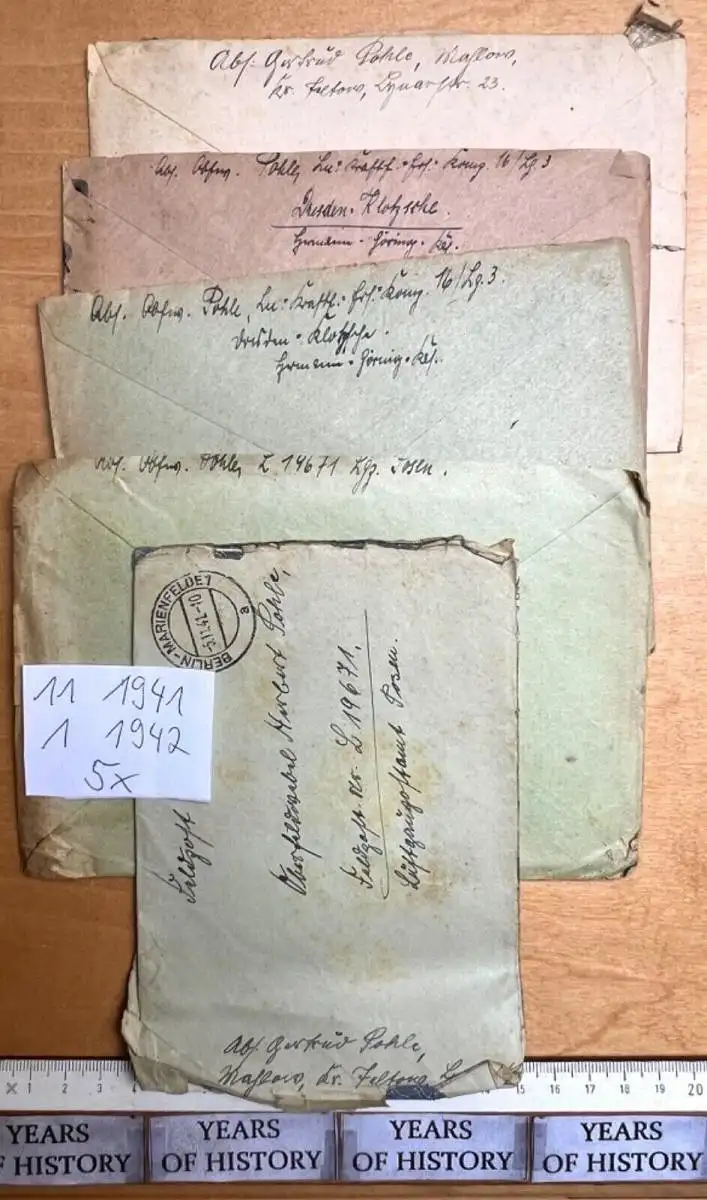 Abs. Gertrud Pohle, Mahlow,
Kr. Teltow, Lynarstr. 23.
Abs. Obfw. Pohle, Ln.-Kraftf.-Ers.-Komp. 16/Lg. 3
Dresden-Klotzsche.
Hermann-Göring-Kas.
Abs. Obfw. Pohle, Ln.-Kraftf.-Ers.-Komp. 16/Lg. 3.
Dresden-Klotzsche.
Hermann-Göring-Kas.
Abs. Obfw. Pohle, L 19671 Lgp. Posen.
BERLIN-MARIENFELDE 1
a
Feldpost
Oberfeldwebel Herbert Pohle,
Feldpost-Nr. L 19671.
Luftgaupostamt Posen.
11 1941
1 1942
5x
Abs. Gertrud Pohle,
Mahlow, Kr. Teltow,
1 2 3 4
15 16 17 18 19 20
YEARS OF HISTORY
YEARS OF HISTORY
YEARS OF HISTORY
YEARS OF HISTORY